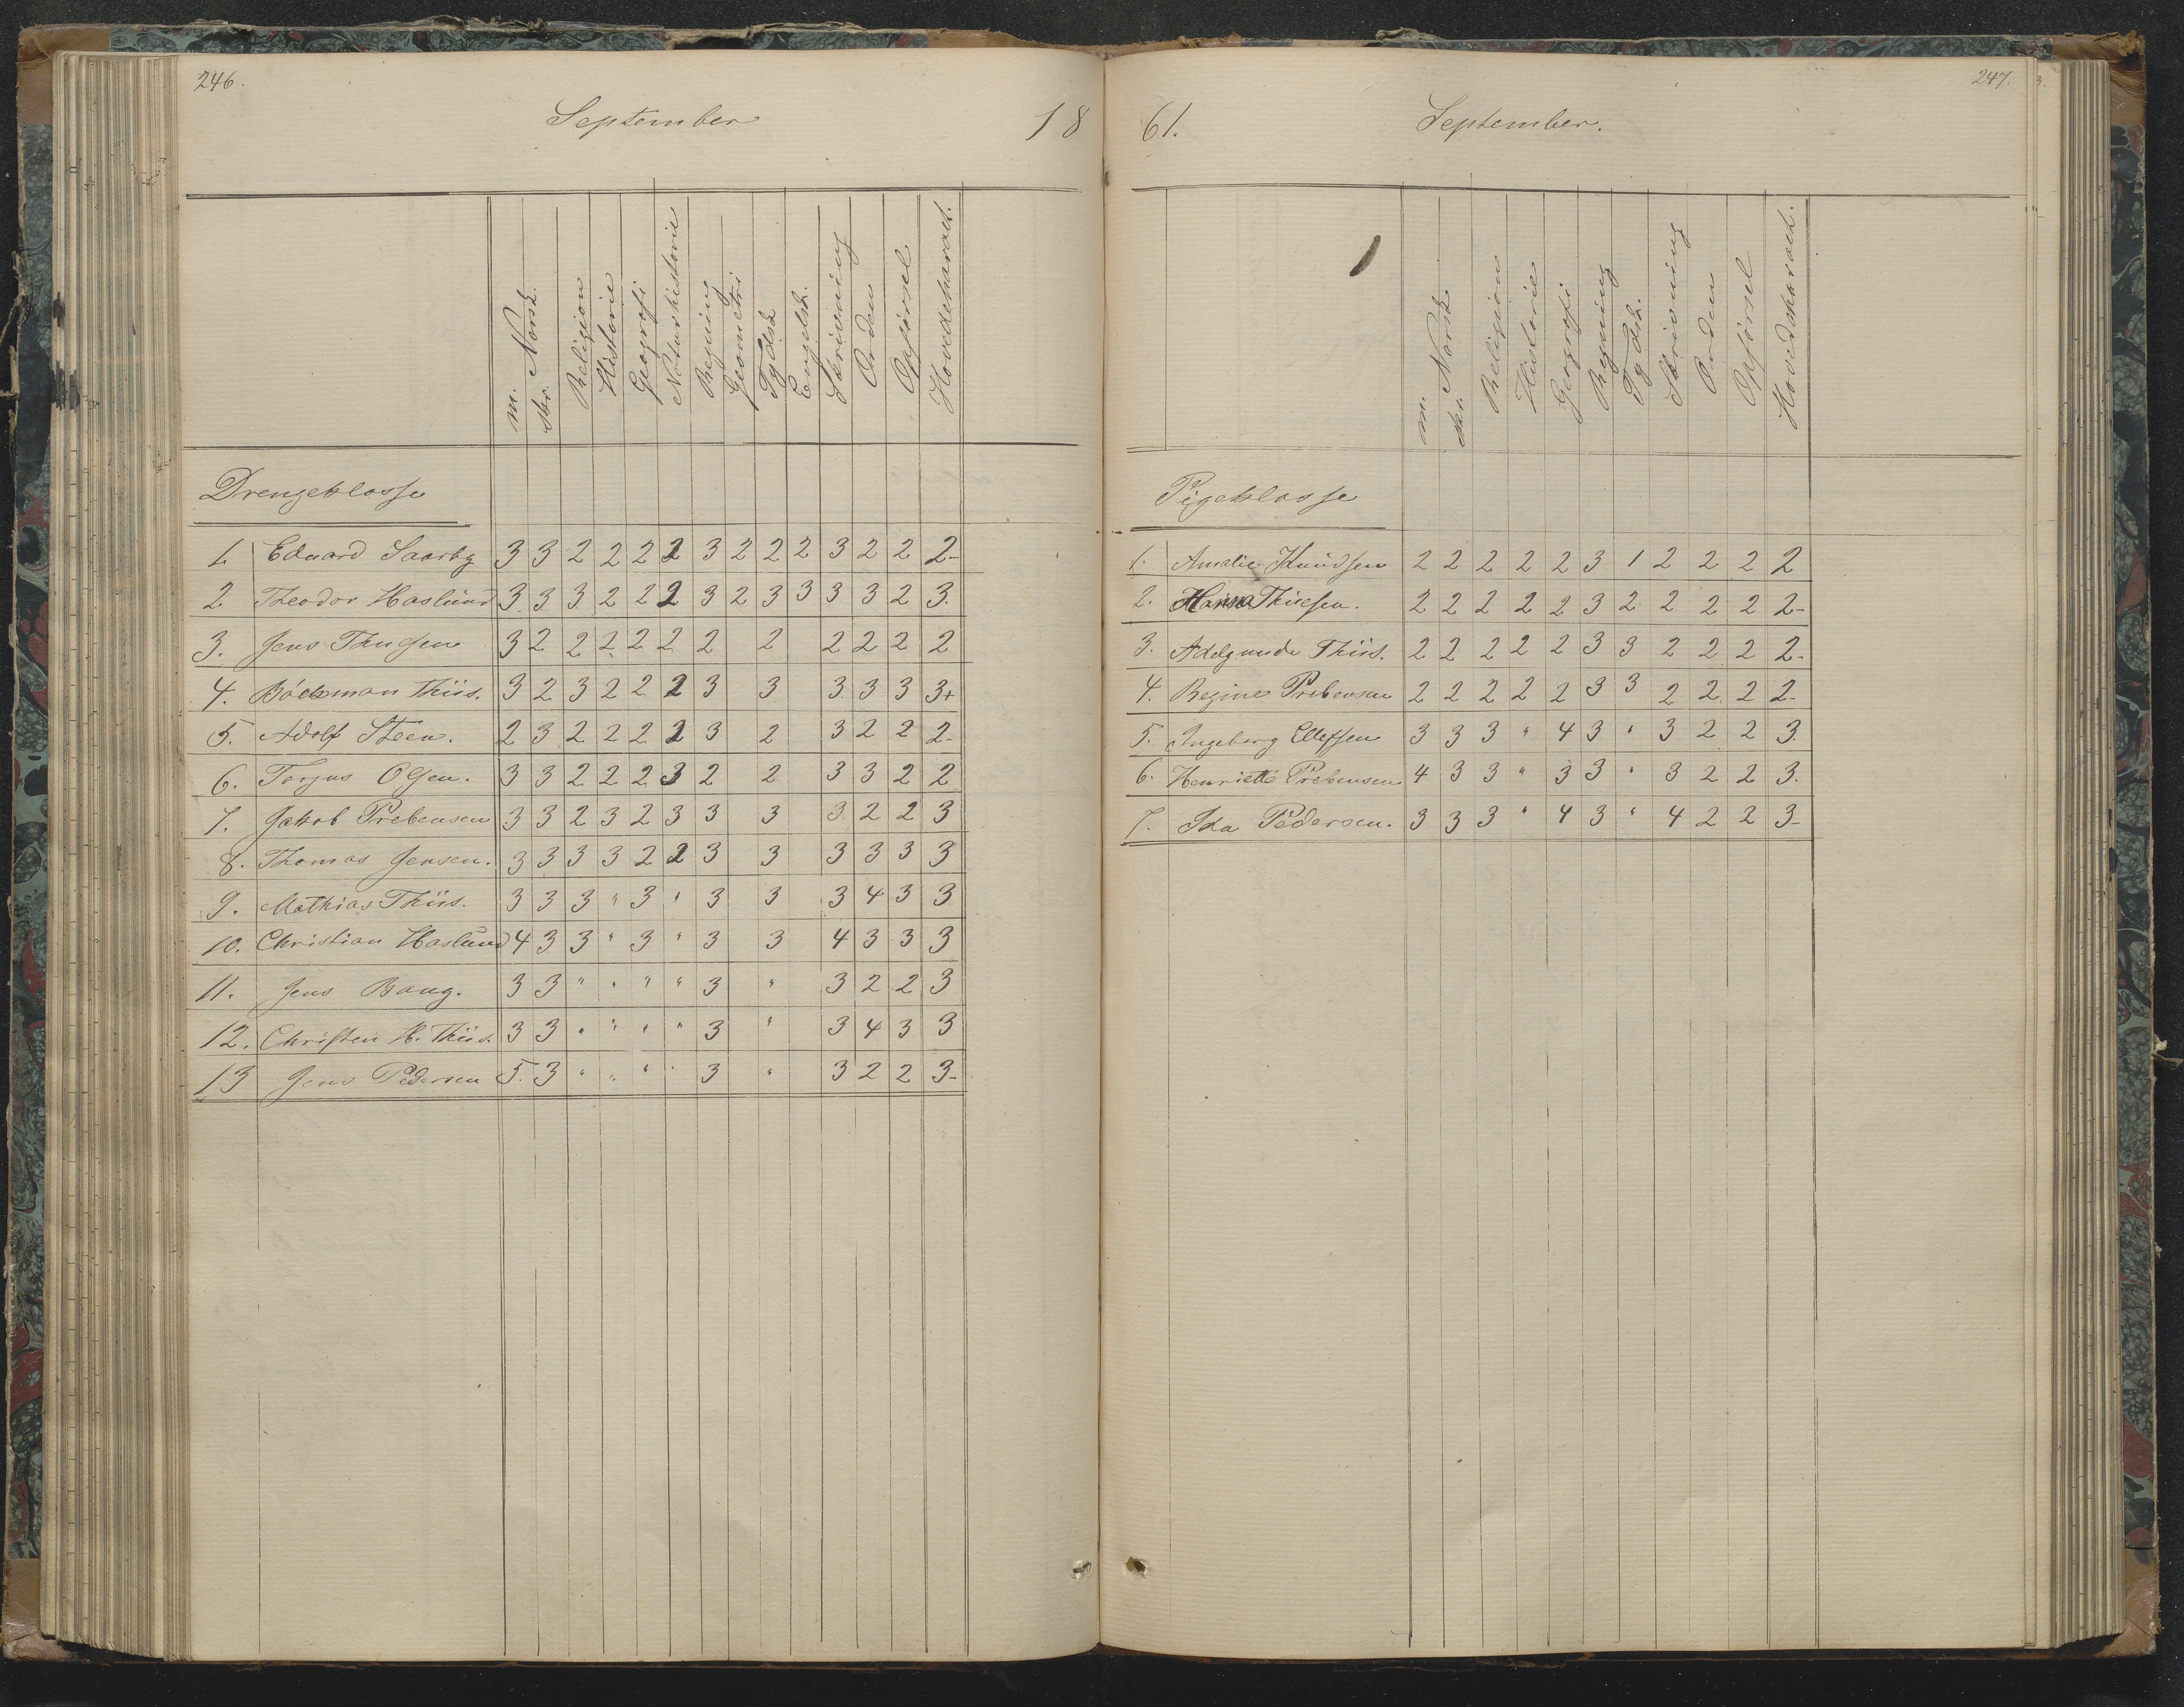 246.
September 18
m. Norsk. skr. Religion Historie Geografi Naturhistorie Regning Geometri Tydsk Engelsk. Skrivning Orden Opførsel Hovedcharact.
Drengeklasse
1. Eduard 3 3 2 2 2 2 3 2 2 2 3 2 2 2-
2 Theodor Haslund 3 3 3 2 2 2 3 2 3 3 3 3 2 3.
3. Jens 3 2 2 2 2 2 2 2 2 2 2 2
4. Böckman Thiis. 3 2 3 2 2 2 3 3 3 3 3 3+
5. Adolf Steen. 2 3 2 2 2 2 3 2 3 2 2 2-
6. Torjus Olsen. 3 3 2 2 2 3 2 2 3 3 2 2
7. Jakob Prebensen 3 3 2 3 2 3 3 3 3 2 2 3
8. Thomas Jensen. 3 3 3 3 2 2 3 3 3 3 3 3
9. Mathias Thiis. 3 3 3 " 3 " 3 3 3 4 3 3
10. Christian Haslund 4 3 3 " 3 " 3 3 4 3 3 3
11. Jens Bang. 3 3 " " " " 3 " 3 2 2 3
12. Christen H. Thiis. 3 3 " " " " 3 " 3 4 3 3
13 Jens Pedersen 5. 3 " " " " 3 " 3 2 2 3-
247.
61. September.
m. Norsk skr. Religion Historie Geografi Regning Tydsk. Skrivning Orden Opførsel Hovedcharact.
Pigeklasse
1. Amalie Knudsen 2 2 2 2 2 3 1 2 2 2 2
2. 2 2 2 2 2 3 2 2 2 2 2-
3. Adelgunde Thiis. 2 2 2 2 2 3 3 2 2 2 2-
4. Regine Prebensen 2 2 2 2 2 3 3 2 2 2 2-
5. Ingeborg Ellefsen 3 3 3 " 4 3 " 3 2 2 3
6. Henriette Prebensen 4 3 3 " 3 3 " 3 2 2 3.
7. Ida Pedersen. 3 3 3 " 4 3 " 4 2 2 3-